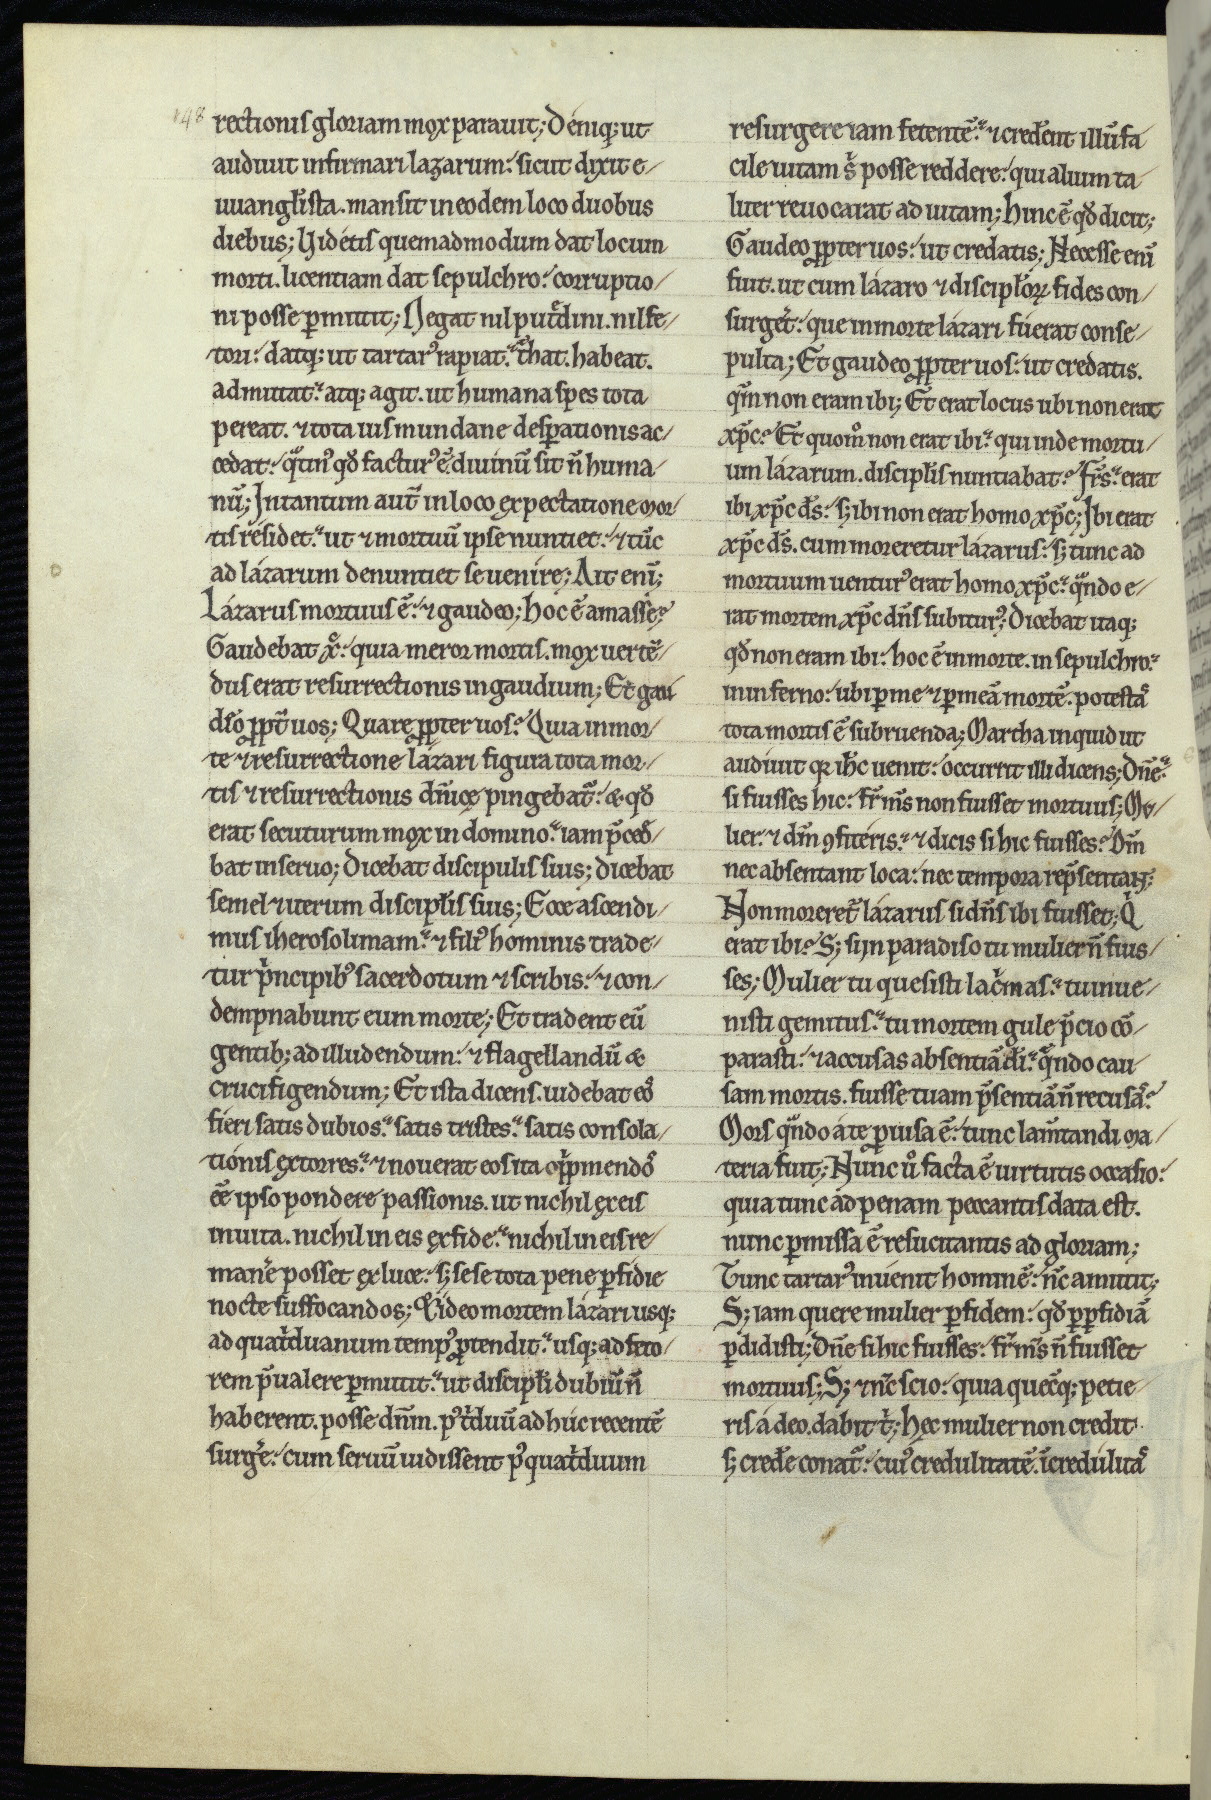 148
rectionis gloriam mox parauit; Deniq; ut
audiuit infirmari lazarum: sicut dixit e/
uuangl̄ista. mansit in eodem loco duobus
diebus; Videtis quemadmodum dat locum
morti. licentiam dat sepulchro: corruptio/
ni posse p̱mittit; Negat nil put̄dini. nil fe/
tori: datq; ut tartarꝰ rapiat. t̄hat. habeat.
admittat. atq; agit. ut humana spes tota
pereat. ⁊ tota uis mundane desp̱ationis ac/
cedat: q̄tinꝰ qđ facturꝰ ē diuinū sit n̄ huma/
nū; Intantum aut̄ in loco expectatione mor/
tis residet. ut ⁊ mortuū ipse nuntiet: ⁊ tūc
ad lázarum denuntiet se uenire; Ait enī;
Lázarus mortuus ē: ⁊ gaudeo; hoc ē amasse?
Gaudebat xͦ: quia meror mortis. mox uertē/
dus erat resurrectionis in gaudium; Et gau
dio ꝓpt̄ uos; Quare ꝓpter uos? Quia in mor/
te ⁊ resurrectione lázari figura tota mor/
tis ⁊ resurrectionis dn̄icę pingebat̄: & qđ
erat secuturum mox in domino. iam p̄ceđ/
bat in seruo; Dicebat discipulis suis; dicebat
semel ⁊ iterum discipl̄is suis; Ecce ascendi/
mus iherosolimam. ⁊ filiꝰ hominis trade/
tur p̄ncipibꝰ sacerdotum ⁊ scribis: ⁊ con/
dempnabunt eum morte; Et tradent eū
gentib; ad illudendum: ⁊ flagellandū &
crucifigendum; Et ista dicens. uidebat eoˢ
fieri satis dubios. satis tristes. satis consola/
tionis extorres. ⁊ nouerat eos ita opp̄mendoˢ
eē ipso pondere passionis. ut nichil ex eis
in uita. nichil in eis ex fide. nichil in eis re/
manere posset ex luce: sʒ sese tota pene p̱fidie
nocte suffocandos; Et ideo mortem lázari usq;
ad quat̄duanum tempꝰ ꝓtendit. usq; ad feto/
rem p̄ualere p̱mittit. ut discipl̄i dubiū n̄
haberent. posse dn̄m. pꝰ t̄duū ad huc recentē
surgere: cum seruū uidissent pꝰ quat̄duum
resurgere iam fetentē. ⁊ crederent illū fa/
cile uitam s̄ posse reddere: qui alium ta/
liter reuocarat ad uitam; hinc ē qđ dicit;
Gaudeo ꝓpter uos: ut credatis; Necesse enī
fuit. ut cum lázaro ⁊ discipl̄oꝝ fides con/
surget̄: que in morte lázari fúerat conse/
pulta; Et gaudeo ꝓpter uos: ut credatis.
qm̄ non eram ibi; Et erat locus ubi non erat
xp̄c? Et quomͦ non erat ibi. qui inde mortu/
um lázarum. discipl̄is nuntiabat? fr̄s. erat
ibi xp̄c ds̄: sʒ ibi non erat homo xp̄c; Ibi erat
xp̄c ds̄. cum moreretur lázarus: sʒ tunc ad
mortuum uenturꝰ erat homo xp̄c. qn̄do e/
rat mortem xp̄c dn̄s subiturꝰ. Dicebat itaq;
qđ non eram ibi: hoc ē in morte. in sepulchro.
in inferno: ubi p̱ me ⁊ p̱ meā mortē. potestaˢ
tota mortis ē subruenda; Martha inquid ut
audiuit qr ih̄c uenit: occurrit illi dicens; Dn̄e.
si fuisses hic: fr̄ m̄s non fuisset mortuus; Mv/
lier: ⁊ dn̄m ꝯfiteris. ⁊ dicis si hic fuisses? Dn̄m
nec absentant loca: nec tempora rep̄sentant;
Non moreret̄ lázarus si dn̄s ibi fuisset; Qͥ
erat ibi? S; si in paradiso tu mulier n̄ fuis/
ses; Mulier tu quesisti lac̄mas. tu inue/
nisti gemitus. tu mortem gule p̄cio cō/
parasti: ⁊ accusas absentiā dī. qn̄do cau/
sam mortis. fuisse tuam p̄sentiā n̄ recusaˢ?
Mors qn̄do a te p̱iusa ē: tunc lam̄tandi ma/
teria fuit; Nunc uͦ facta ē uirtutis occasio:
quia tunc ad penam peccantis data est.
nunc p̱missa ē resucitantis ad gloriam;
Tunc tartarꝰ inuenit hominē: nc̄ amittit;
S; iam quere mulier p̱ fidem: qđ p̱ p̱fidiā
p̱didisti; Dn̄e si hic fuisses: fr̄ m̄s n̄ fuisset
mortuus; S; ⁊ nc̄ scio: quia quec̄q; petie/
ris a deo. dabit tͥ; hec mulier non credit
sʒ credere conat̄: cuiꝰ credulitatē. īcredulitaˢ